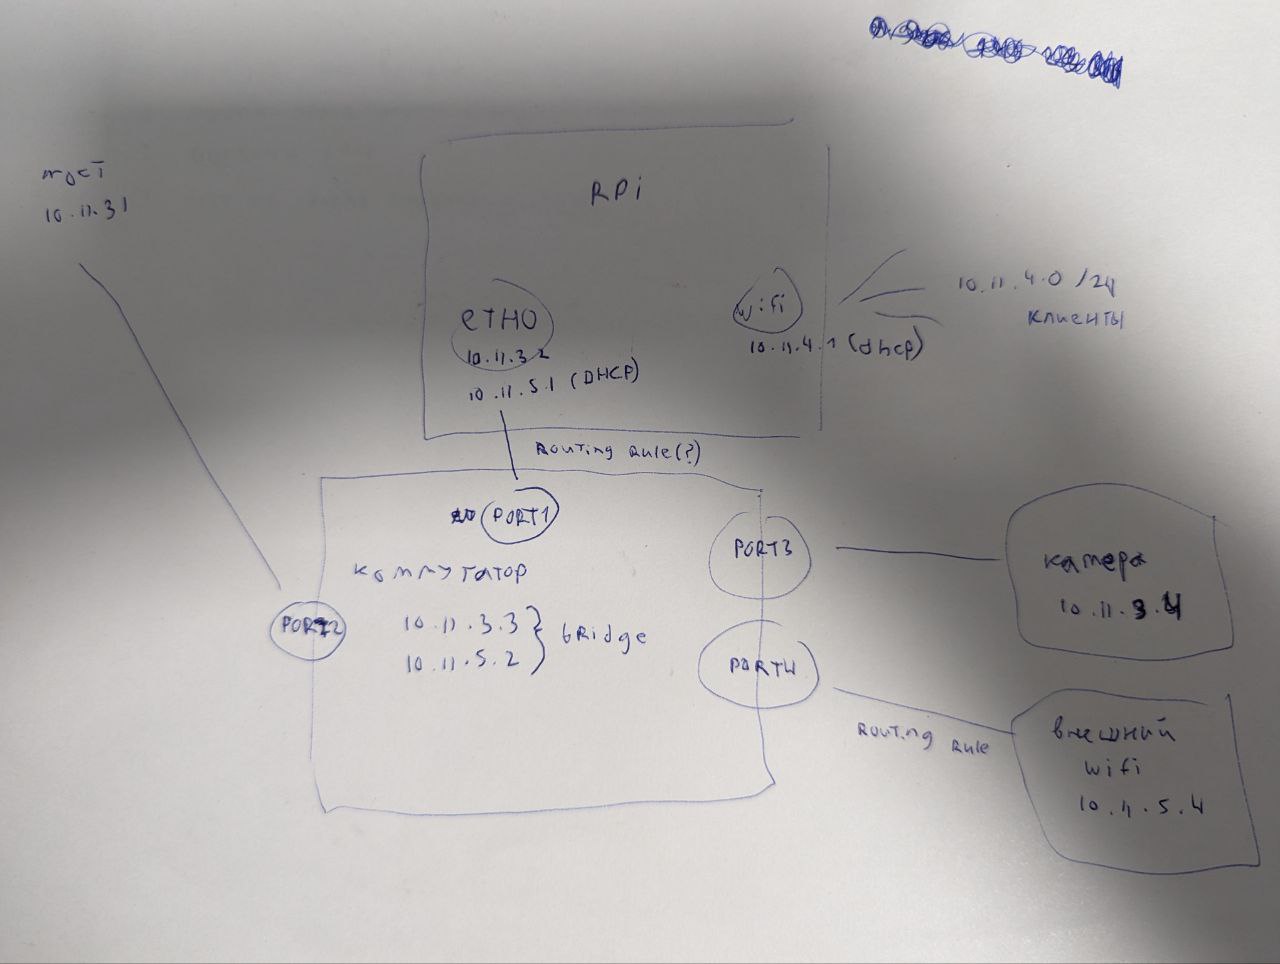 мост
10.11.31
RPi
ETH0
10.11.3.2
10.11.5.1 (DHCP)
wifi
10.11.4.1 (dhcp)
10.11.4.0/24
клиенты
Routing Rule(?)
PORT1
коммутатор
PORT2
10.11.3.3
10.11.5.2
bRidge
PORT3
PORT4
камера
10.11.3.4
Routing Rule
внешний
wifi
10.11.5.4